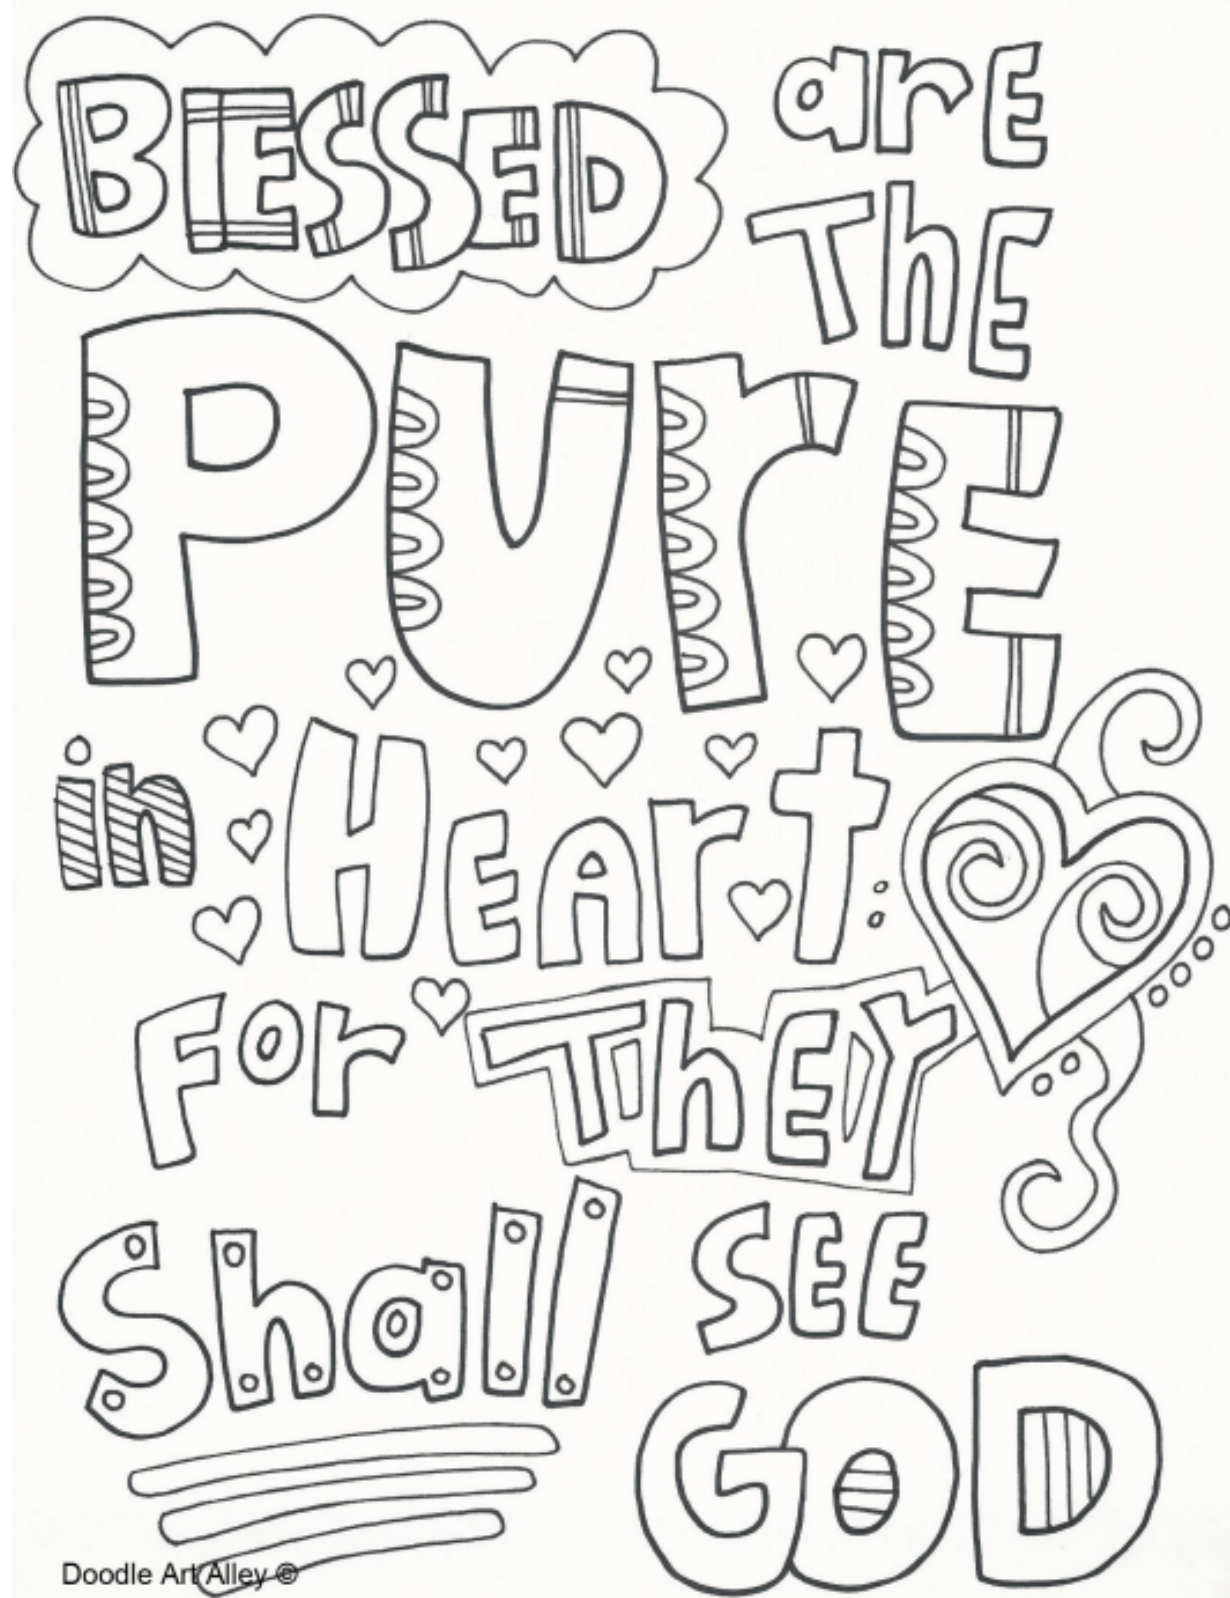 BLESSED are
ThE
PUrE
in HEArt:
For ThEY
Shall SEE
GOD
Doodle Art Alley ©